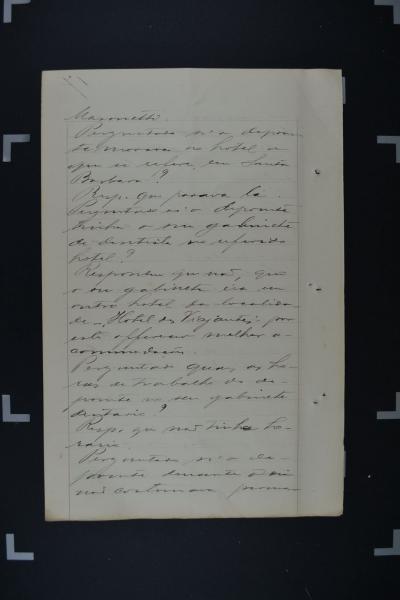 Perguntado si o depoen-
te morava no hotel a
que se refere em Santa
Barbara?
Resp. que parava lá.
Perguntado si o depoente
tinha o seu gabinete
de dentista no referido
hotel?
Respondeu que não, que
o seu gabinete era em
outro hotel da localida-
de "Hotel dos Viajantes" por
este offerecer melhor a-
commodação.
Perguntado quaes as ho-
ras de trabalho do de-
poente no seu gabinete
dentario?
Resp. que não tinha ho-
rario.
Perguntado si o de-
poente durante o dia
não costumava